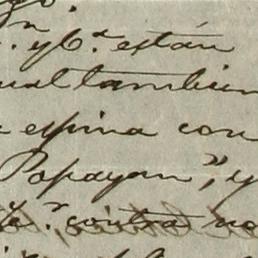 y 6.ª están
ual tambien
espina con
Popayan", y
contra no